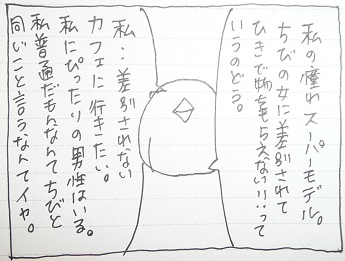 私の憧れスーパーモデル。
ちびの女に差別されて
ひきで物をもらえない!!って
いうのどう。
私:差別されない
カフェに行きたい。
私にぴったりの男性はいる。
私普通だもんなんてちびと
同じこと言うなんてイヤ。